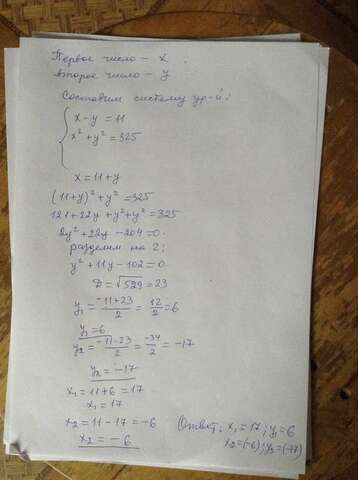 Первое число – x.
второе число – y
Составим систему ур-й:
x – y = 11
x² + y² = 325
x = 11 + y
(11+y)² + y² = 325
121 + 22y + y² + y² = 325
2y² + 22y – 204 = 0.
разделим на 2:
y² + 11y – 102 = 0
D = √529 = 23
y₁ = (-11+23)/2 = 12/2 = 6
y₁ = 6
y₂ = (-11-23)/2 = -34/2 = -17
y₂ = -17
x₁ = 11 + 6 = 17
x₁ = 17
x₂ = 11 – 17 = -6
x₂ = -6
Ответ: x₁ = 17; y₁ = 6
x₂ = (-6); y₂ = (-17)